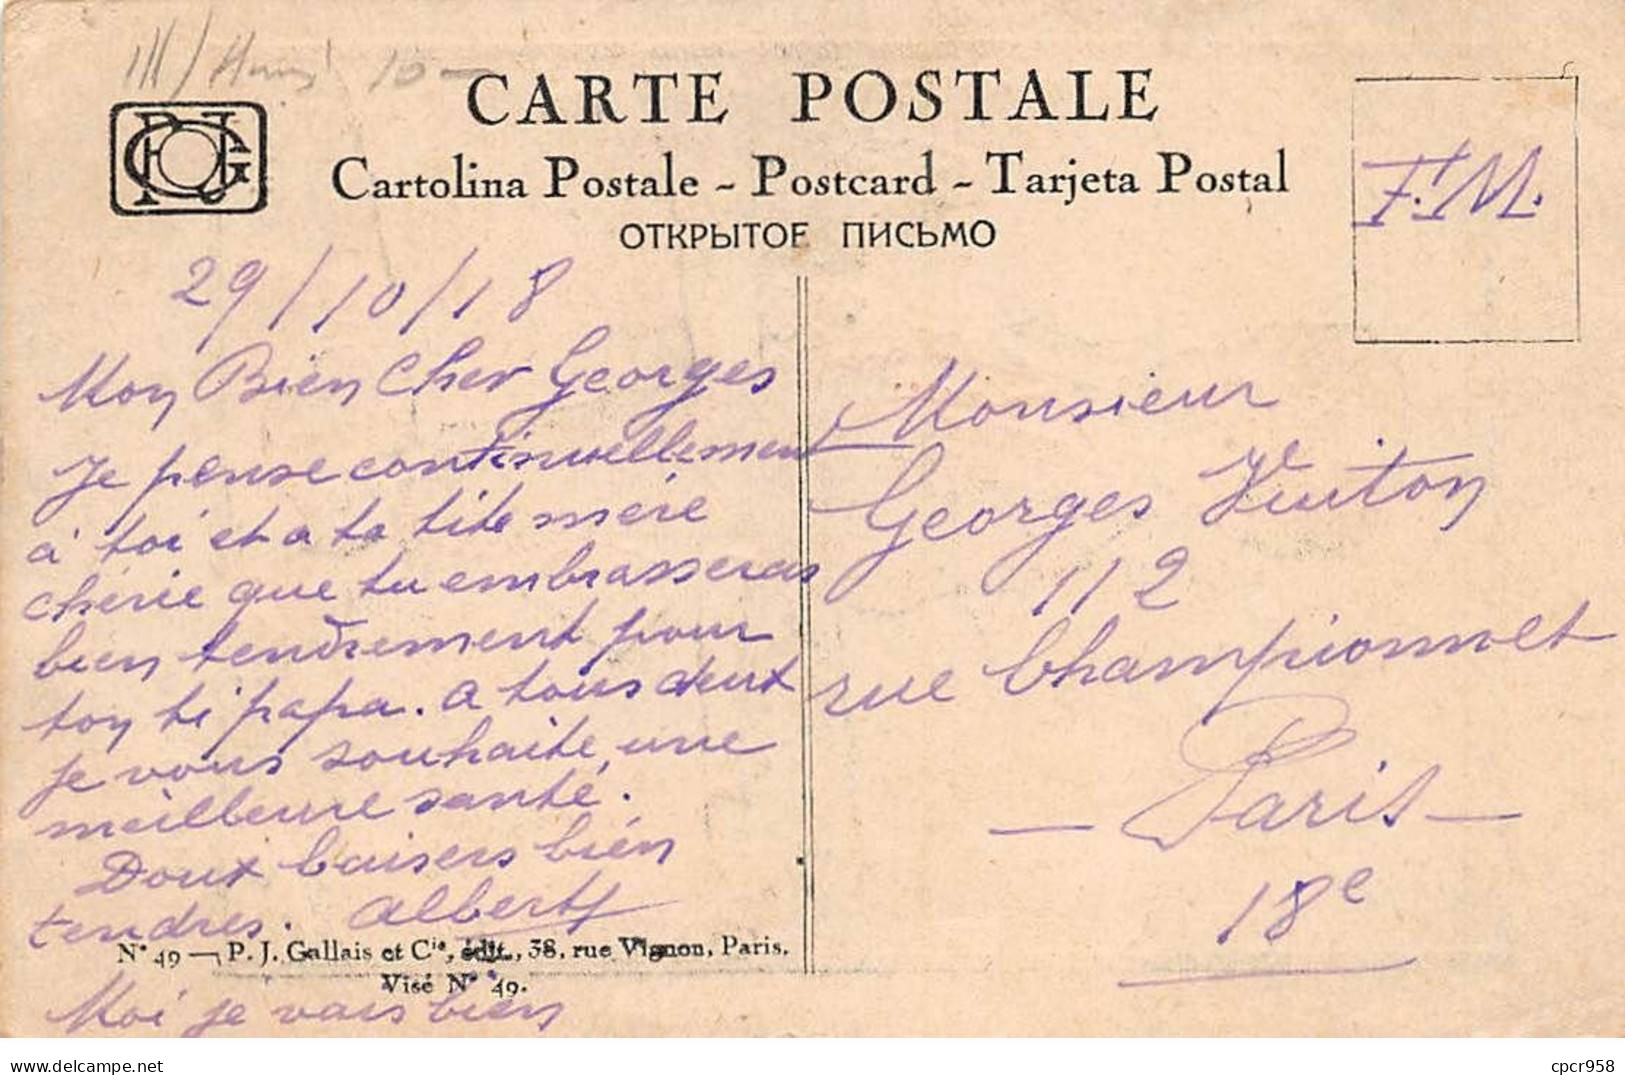 III/ 10-
CARTE POSTALE
Cartolina Postale - Postcard - Tarjeta Postal
ОТКРЫТОЕ ПИСЬМО
F.M.
29/10/18
Mon Bien Cher Georges
Je pense continuellement
à toi et a ta tite mère
chérie que tu embrasseras
bien tendrement pour
ton ti papa. a tous deux
je vous souhaite une
meilleure santé.
Doux baisers bien
tendres. Albert
Moi je vais bien
Monsieur
Georges Vuiton
112
rue Championnet
- Paris -
18e
N° 49 — P. J. Gallais et Cie, édit., 38, rue Vignon, Paris.
Visé N° 49.
cpcr958